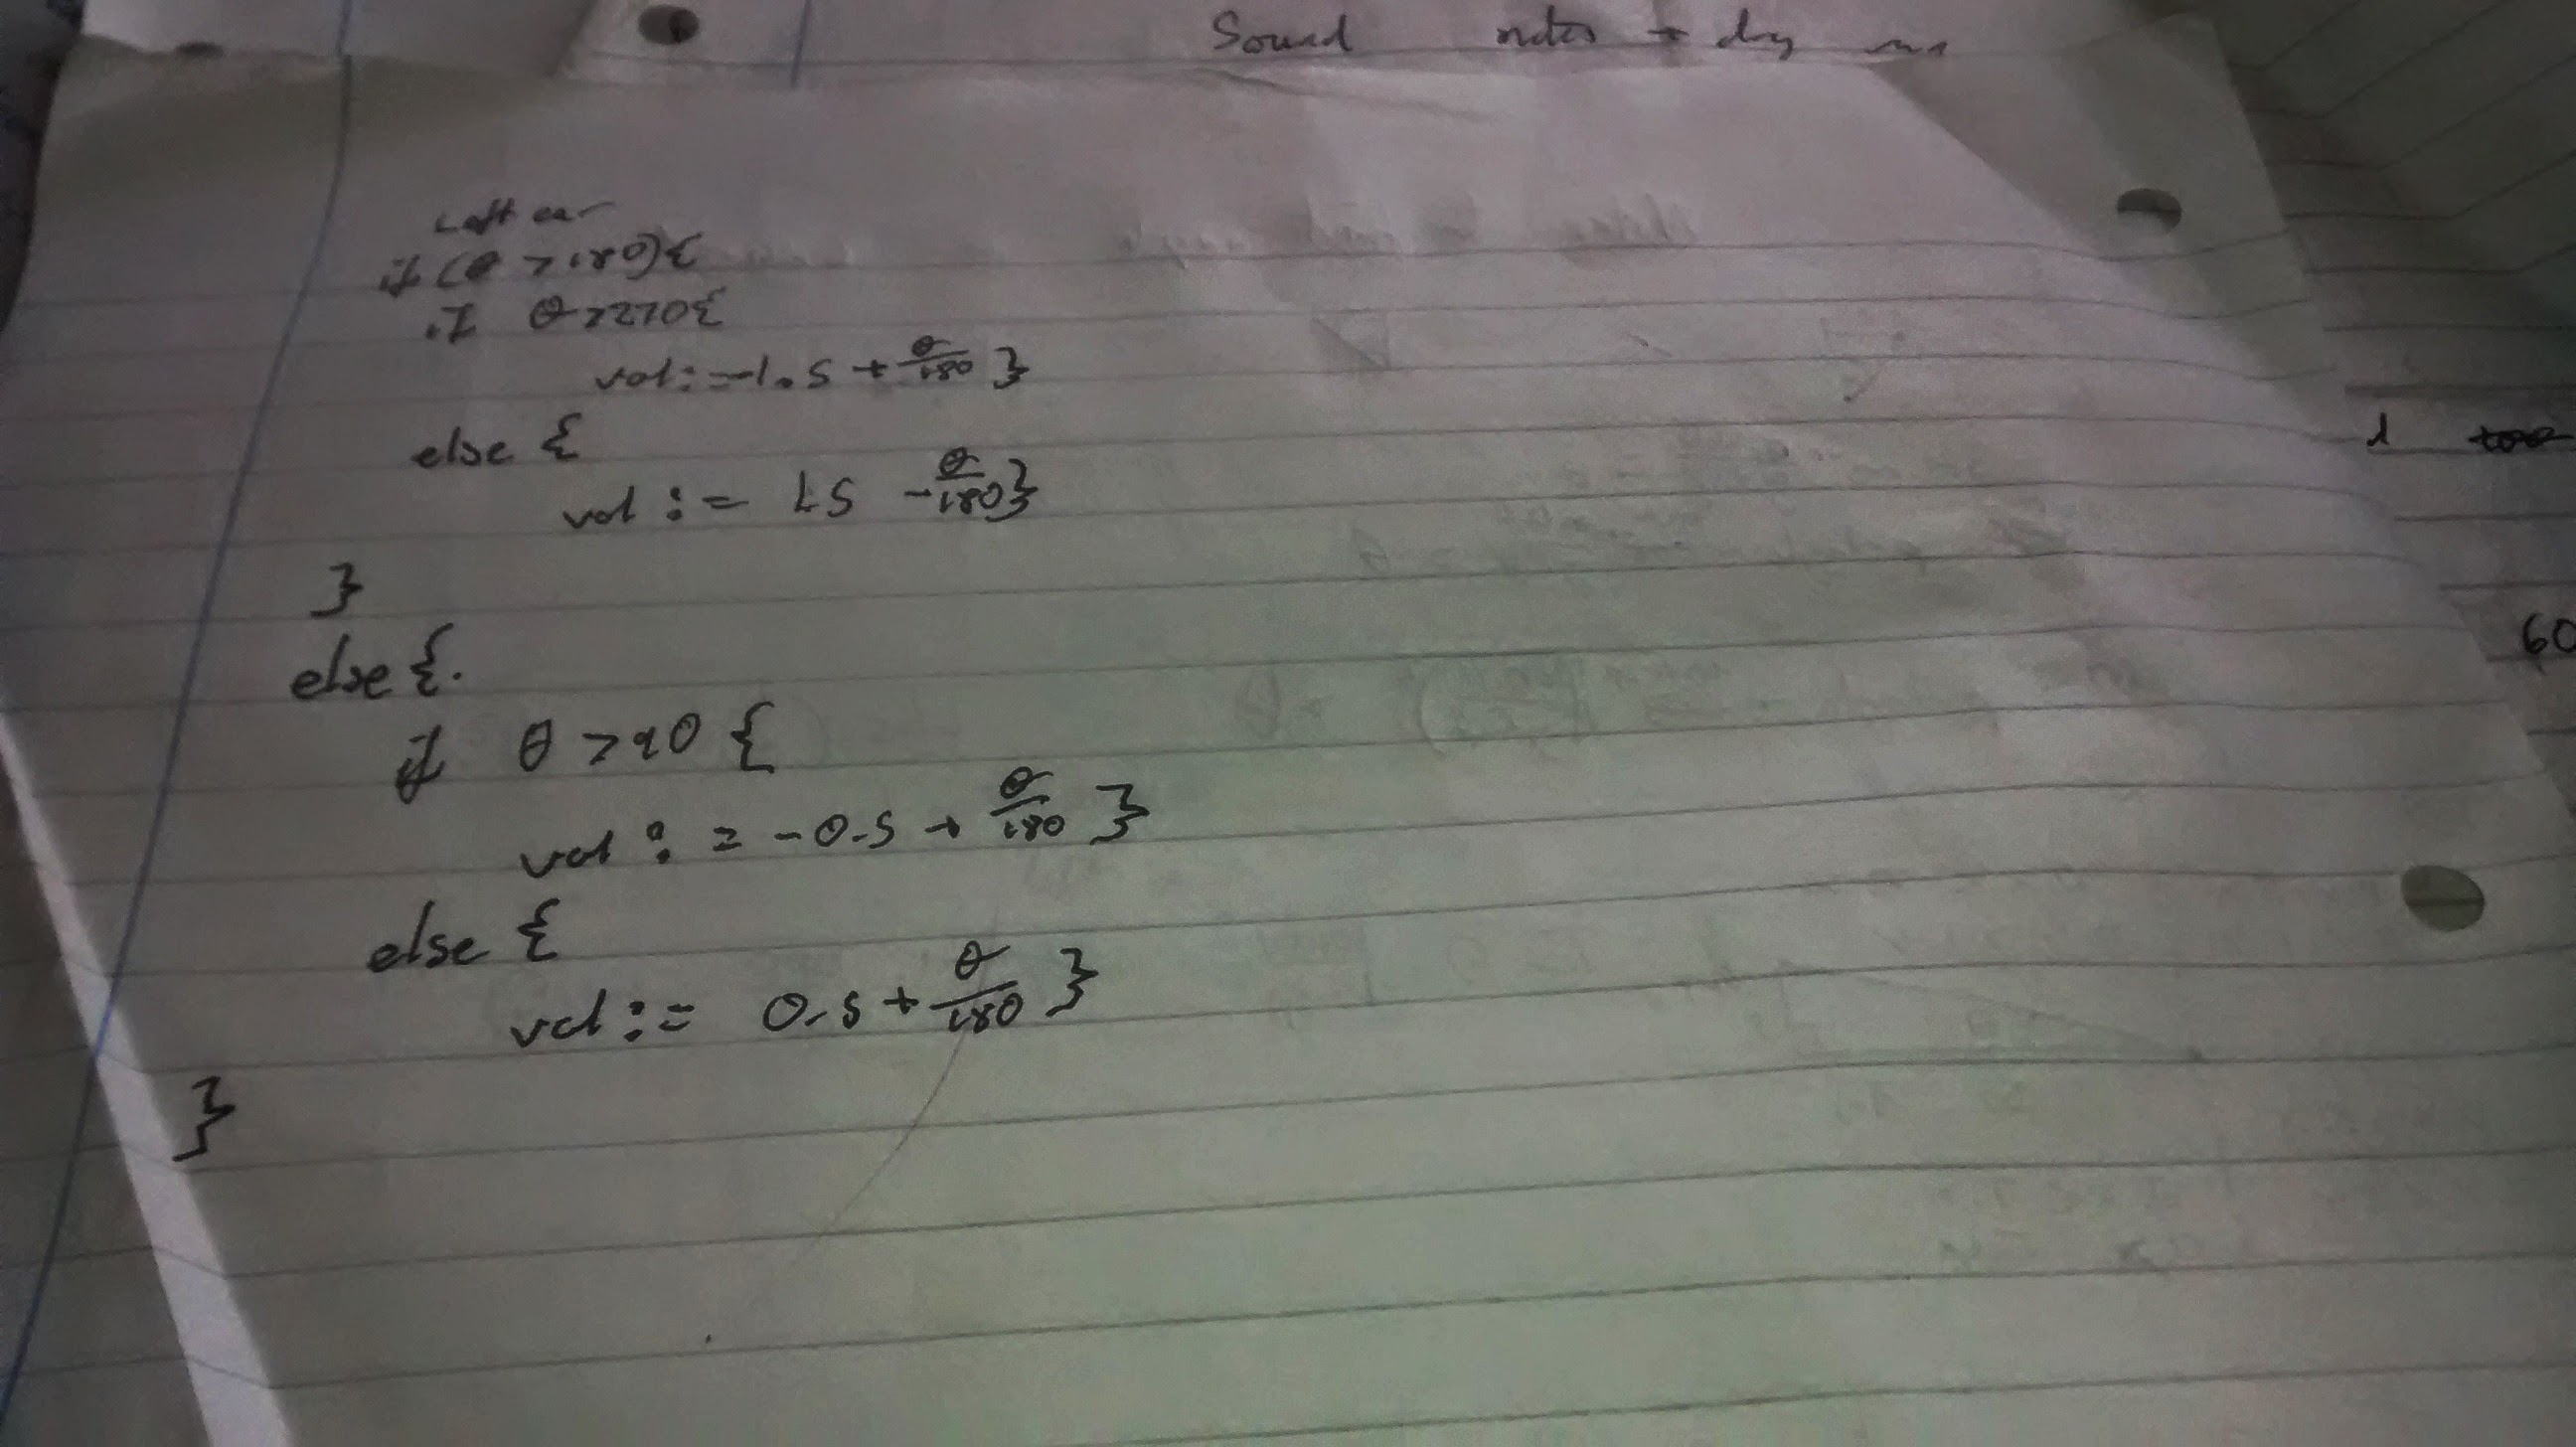 Sound notes + dry
Left ear
if (θ > 180) {
if θ > 270 {
vol := -1.5 + θ/180 }
else {
vol := 1.5 - θ/180 }
}
else {.
if θ > 90 {
vol := -0.5 + θ/180 }
else {
vol := 0.5 + θ/180 }
}
60